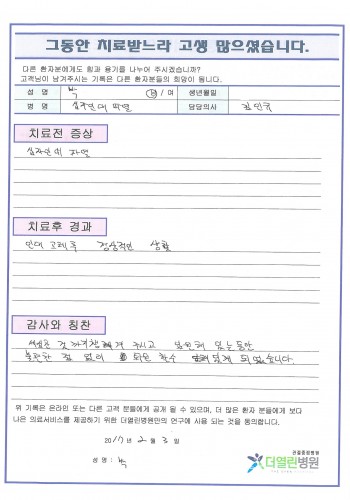 그동안 치료받느라 고생 많으셨습니다.
다른 환자분에게도 힘과 용기를 나누어 주시겠습니까?
고객님이 남겨주시는 기록은 다른 환자분들의 희망이 됩니다.
성 명 박 남 / 여 생년월일
병 명 십자인대 파열 담당의사 김인규
치료전 증상
십자인대 파열
치료후 경과
인대 교체 후 정상적인 생활
감사와 칭찬
세심한 것까지 챙겨 주시고 입원해 있는동안
불편한 점 없이 되었습니다.
위 기록은 온라인 또는 다른 고객 분들에게 공개 될 수 있으며, 더 많은 환자 분들에게 보다
나은 의료서비스를 제공하기 위한 더열린병원만의 연구에 사용 되는 것을 동의합니다.
2017년 2월 3일
성 명 : 박
관절중점병원
더열린병원